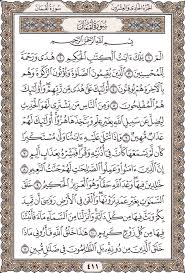 الجزء الحادي والعشرون سورة لقمان
سورة لقمان
بِسْمِ ٱللَّهِ ٱلرَّحْمَٰنِ ٱلرَّحِيمِ
الٓمٓ ١ تِلْكَ ءَايَٰتُ ٱلْكِتَٰبِ ٱلْحَكِيمِ ٢ هُدًى وَرَحْمَةً
لِّلْمُحْسِنِينَ ٣ ٱلَّذِينَ يُقِيمُونَ ٱلصَّلَوٰةَ وَيُؤْتُونَ ٱلزَّكَوٰةَ وَهُم
بِٱلْءَاخِرَةِ هُمْ يُوقِنُونَ ٤ أُوْلَٰٓئِكَ عَلَىٰ هُدًى مِّن رَّبِّهِمْ وَأُوْلَٰٓئِكَ
هُمُ ٱلْمُفْلِحُونَ ٥ وَمِنَ ٱلنَّاسِ مَن يَشْتَرِى لَهْوَ ٱلْحَدِيثِ
لِيُضِلَّ عَن سَبِيلِ ٱللَّهِ بِغَيْرِ عِلْمٍ وَيَتَّخِذَهَا هُزُوًا أُوْلَٰٓئِكَ لَهُمْ
عَذَابٌ مُّهِينٌ ٦ وَإِذَا تُتْلَىٰ عَلَيْهِ ءَايَٰتُنَا وَلَّىٰ مُسْتَكْبِرًا
كَأَن لَّمْ يَسْمَعْهَا كَأَنَّ فِىٓ أُذُنَيْهِ وَقْرًا فَبَشِّرْهُ بِعَذَابٍ أَلِيمٍ ٧
إِنَّ ٱلَّذِينَ ءَامَنُواْ وَعَمِلُواْ ٱلصَّٰلِحَٰتِ لَهُمْ جَنَّٰتُ ٱلنَّعِيمِ ٨
خَٰلِدِينَ فِيهَا وَعْدَ ٱللَّهِ حَقًّا وَهُوَ ٱلْعَزِيزُ ٱلْحَكِيمُ ٩ خَلَقَ
ٱلسَّمَٰوَٰتِ بِغَيْرِ عَمَدٍ تَرَوْنَهَا وَأَلْقَىٰ فِى ٱلْأَرْضِ رَوَٰسِىَ أَن تَمِيدَ
بِكُمْ وَبَثَّ فِيهَا مِن كُلِّ دَآبَّةٍ وَأَنزَلْنَا مِنَ ٱلسَّمَآءِ مَآءً فَأَنۢبَتْنَا
فِيهَا مِن كُلِّ زَوْجٍ كَرِيمٍ ١٠ هَٰذَا خَلْقُ ٱللَّهِ فَأَرُونِى مَاذَا
خَلَقَ ٱلَّذِينَ مِن دُونِهِۦ بَلِ ٱلظَّٰلِمُونَ فِى ضَلَٰلٍ مُّبِينٍ ١١
٤١١